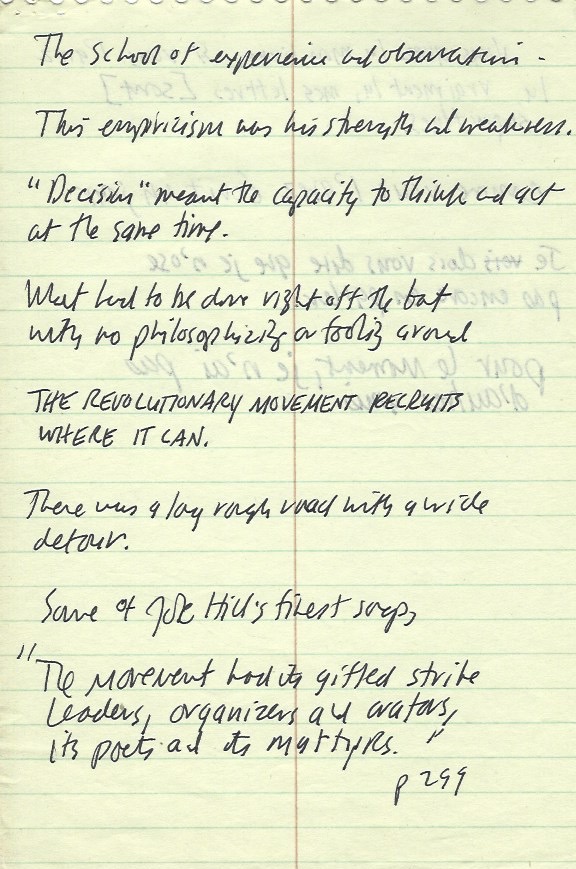 The School of experience and observation -
This empiricism was his strength and weakness.
"Decision" meant the capacity to think and act
at the same time.
What had to be done right off the bat
with no philosophizing or fooling around
THE REVOLUTIONARY MOVEMENT RECRUITS
WHERE IT CAN.
There was a long rough road with a wide
detour.
Some of Joe Hill's finest songs,
"The movement had its gifted strike
leaders, organizers and orators,
its poets and its martyrs."
p 299